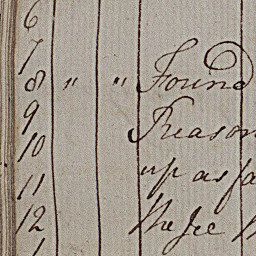 6
7
8 " " Found
9 Reason
10
11 up as fa
12 the Ice
1